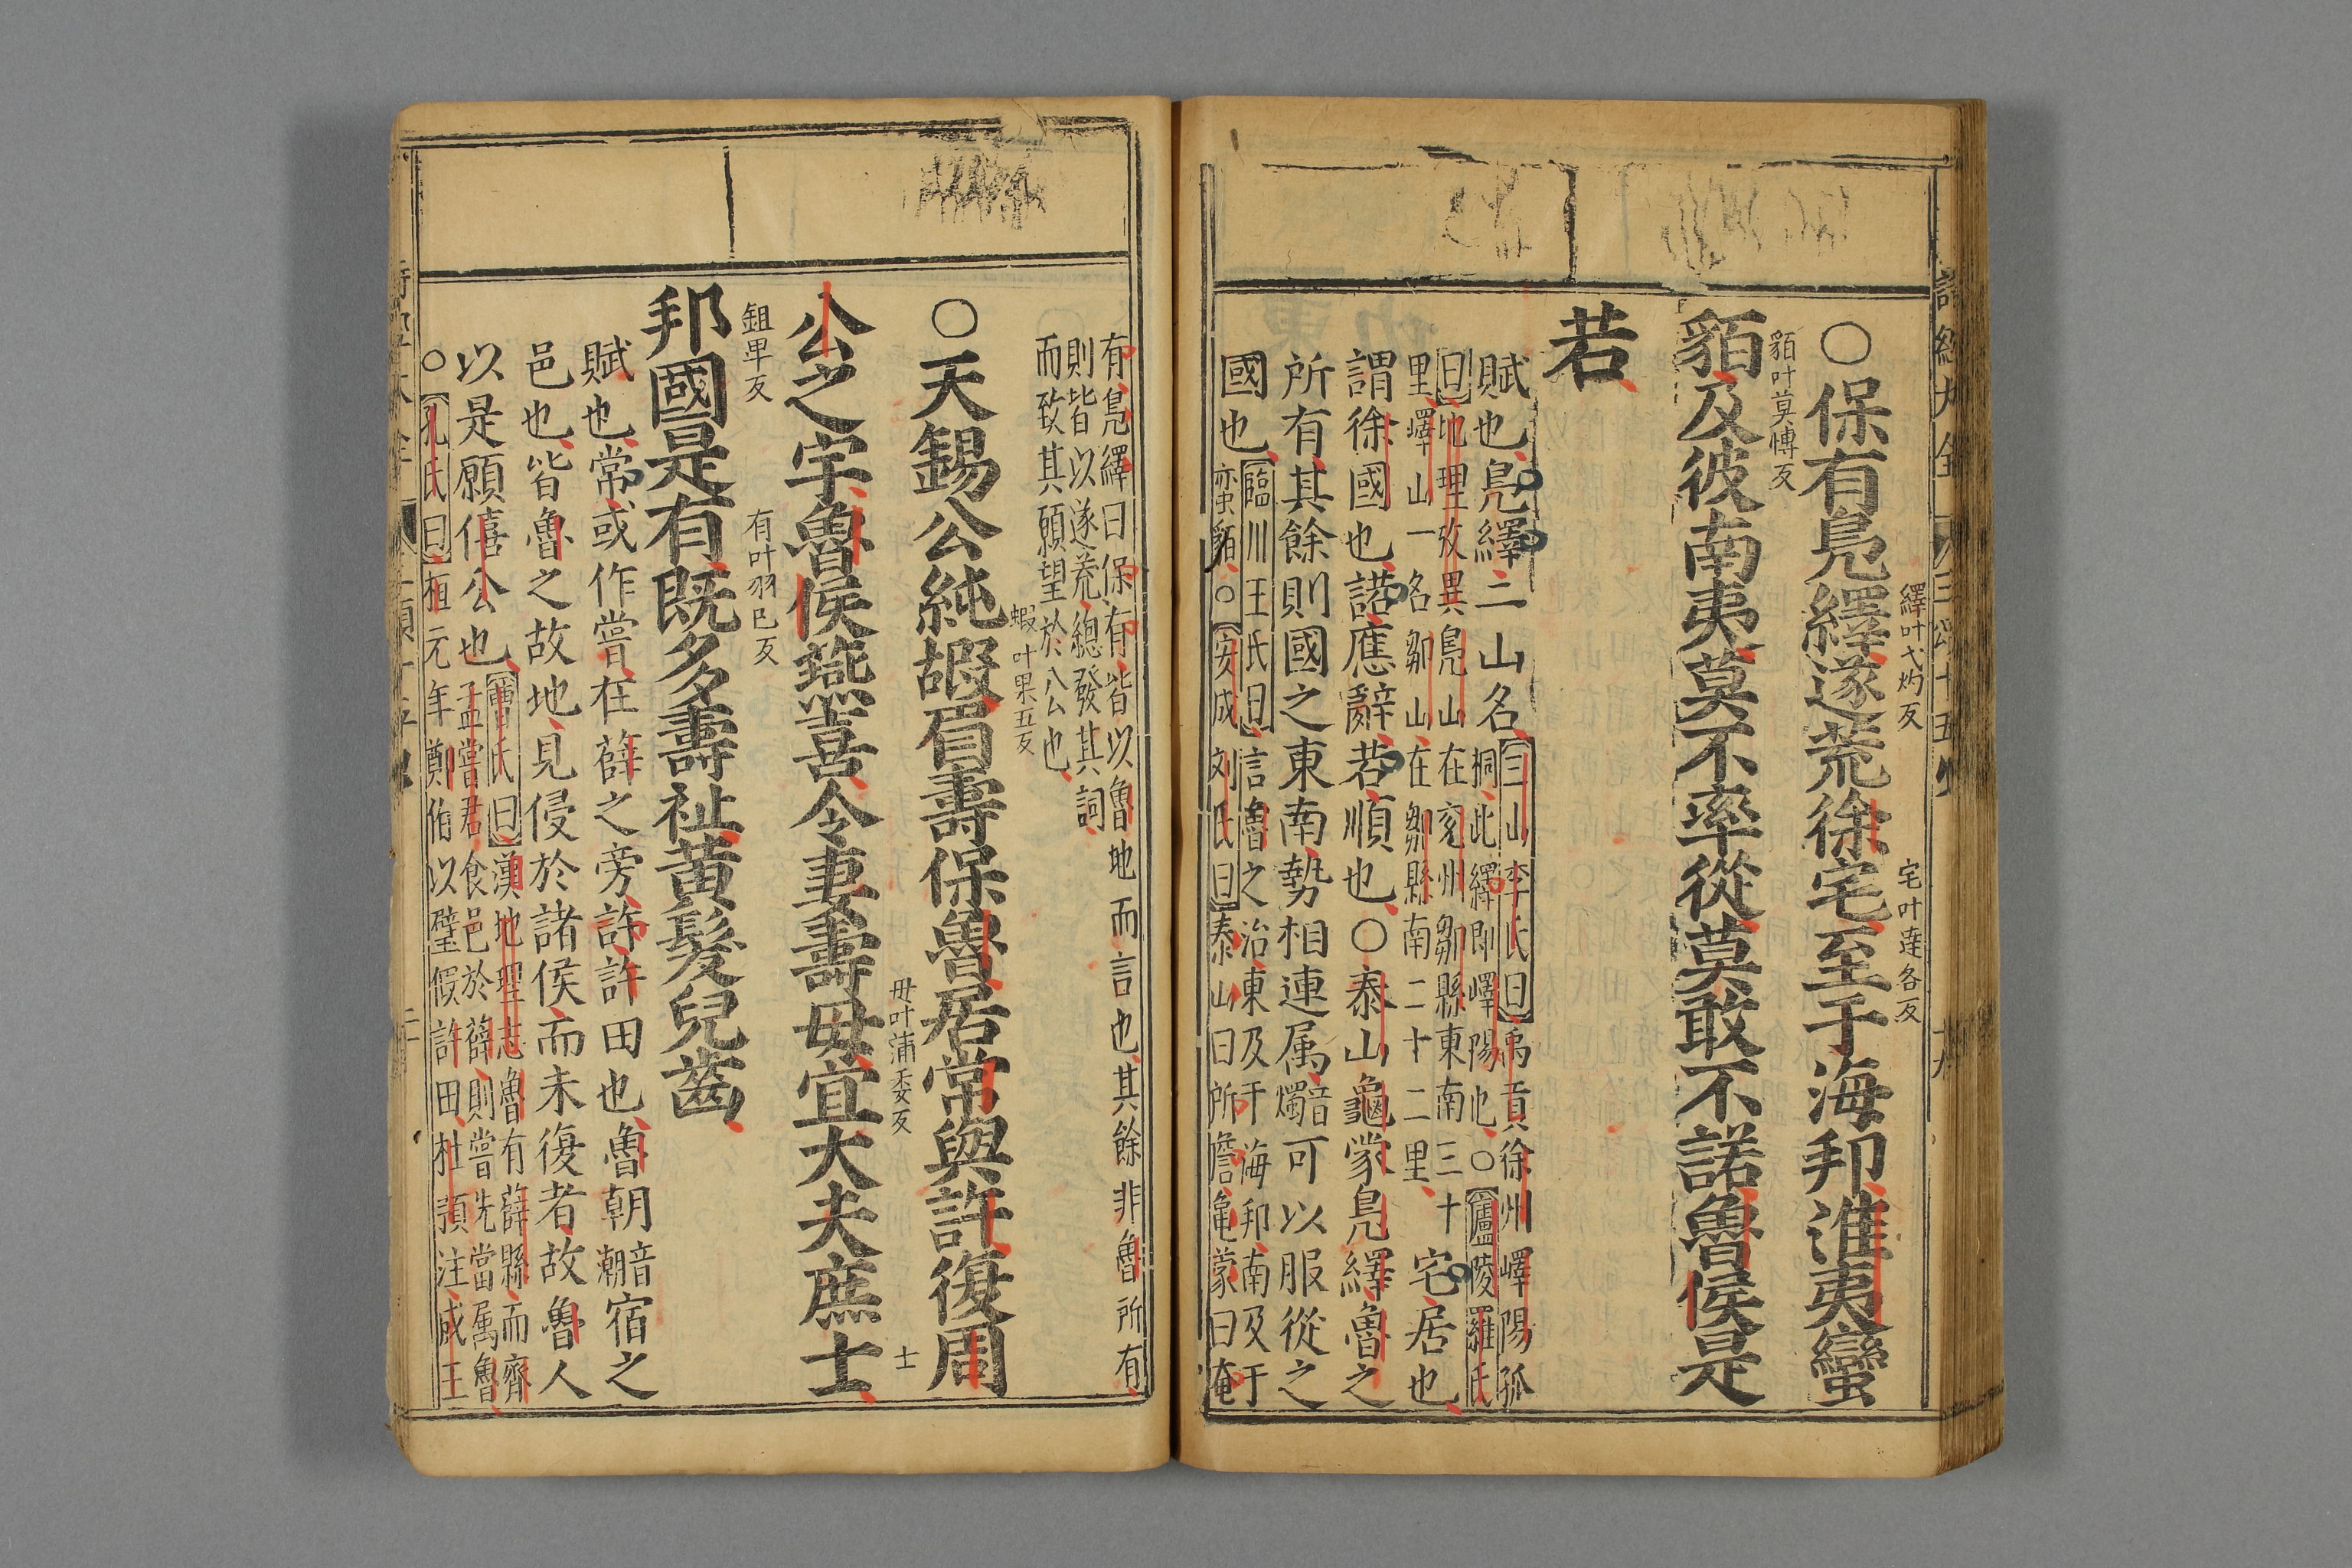 詩經大全
三頌十五卷
○保有鳧繹遂荒徐宅至于海邦淮夷蠻
繹叶弋灼反
宅叶達各反
貊及彼南夷莫不率從莫敢不諾魯侯是
貊叶莫愽反
若
賦也鳧繹二山名
三山李氏曰禹貢徐州嶧陽孤
桐此繹即嶧陽也○廬陵羅氏
曰地理攷異鳧山在兖州鄒縣東南三十
里嶧山一名鄒山在鄒縣南二十二里
宅居也
謂徐國也諾應辭若順也○泰山龜蒙鳧繹魯之
所有其餘則國之東南勢相連属
音
燭
可以服從之
國也
臨川王氏曰言魯之治東及于海邦南及于
蛮貊○安成刘氏曰泰山曰所詹龜蒙曰奄
有鳧繹曰保有皆以魯地而言也其餘非魯所有
則皆以遂荒緫發其詞
而致其願望於公也
○天錫公純嘏眉壽保魯居常與許復周
嘏叶果五反
公之宇魯侯燕喜令妻壽母宜大夫庶士
母叶蒲委反
士
鉏里反
邦國是有既多壽祉黃髮兒齒
有叶羽已反
賦也常或作嘗在薛之旁許許田也魯朝
音
潮
宿之
邑也皆魯之故地見侵於諸侯而未復者故魯人
以是願僖公也
曹氏曰漢地理志魯有薛縣而齊
孟嘗君食邑於薛則嘗先當属魯
○孔氏曰桓元年鄭伯以璧假許田杜預注成王